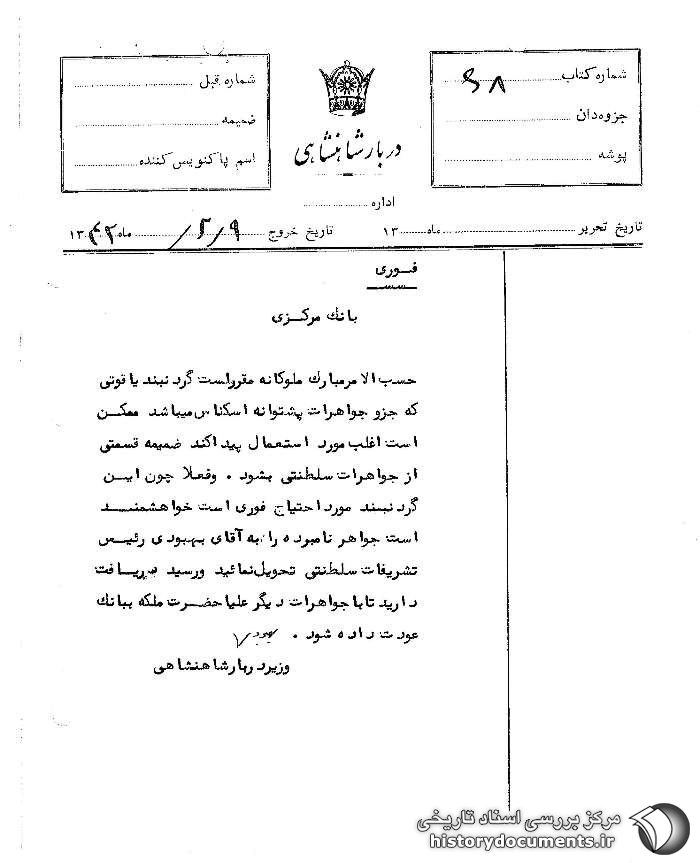 شماره کتاب ۶۸
جزوه‌دان
پوشه
دربار شاهنشاهی
شماره قبل
ضمیمه
اسم پاکنویس کننده
اداره
تاریخ تحریر ماه ۱۳ تاریخ خروج ۲/۹ ماه ۱۳۴۲
فوری
بانک مرکزی
حسب الامر مبارک ملوکانه مقرراست گردنبند یاقوتی
که جزو جواهرات پشتوانه اسکناس میباشد ممکن
است اغلب مورد استعمال پیدا کند ضمیمه قسمتی
از جواهرات سلطنتی بشود . وفعلا چون این
گردنبند مورد احتیاج فوری است خواهشمند
است جواهر نامبرده را به آقای بهبودی رئیس
تشریفات سلطنتی تحویل نمائید ورسید دریافت
دارید تا با جواهرات دیگر علیاحضرت ملکه ببانک
عودت داده شود .
وزیر دربار شاهنشاهی
مرکز بررسی اسناد تاریخی
historydocuments.ir